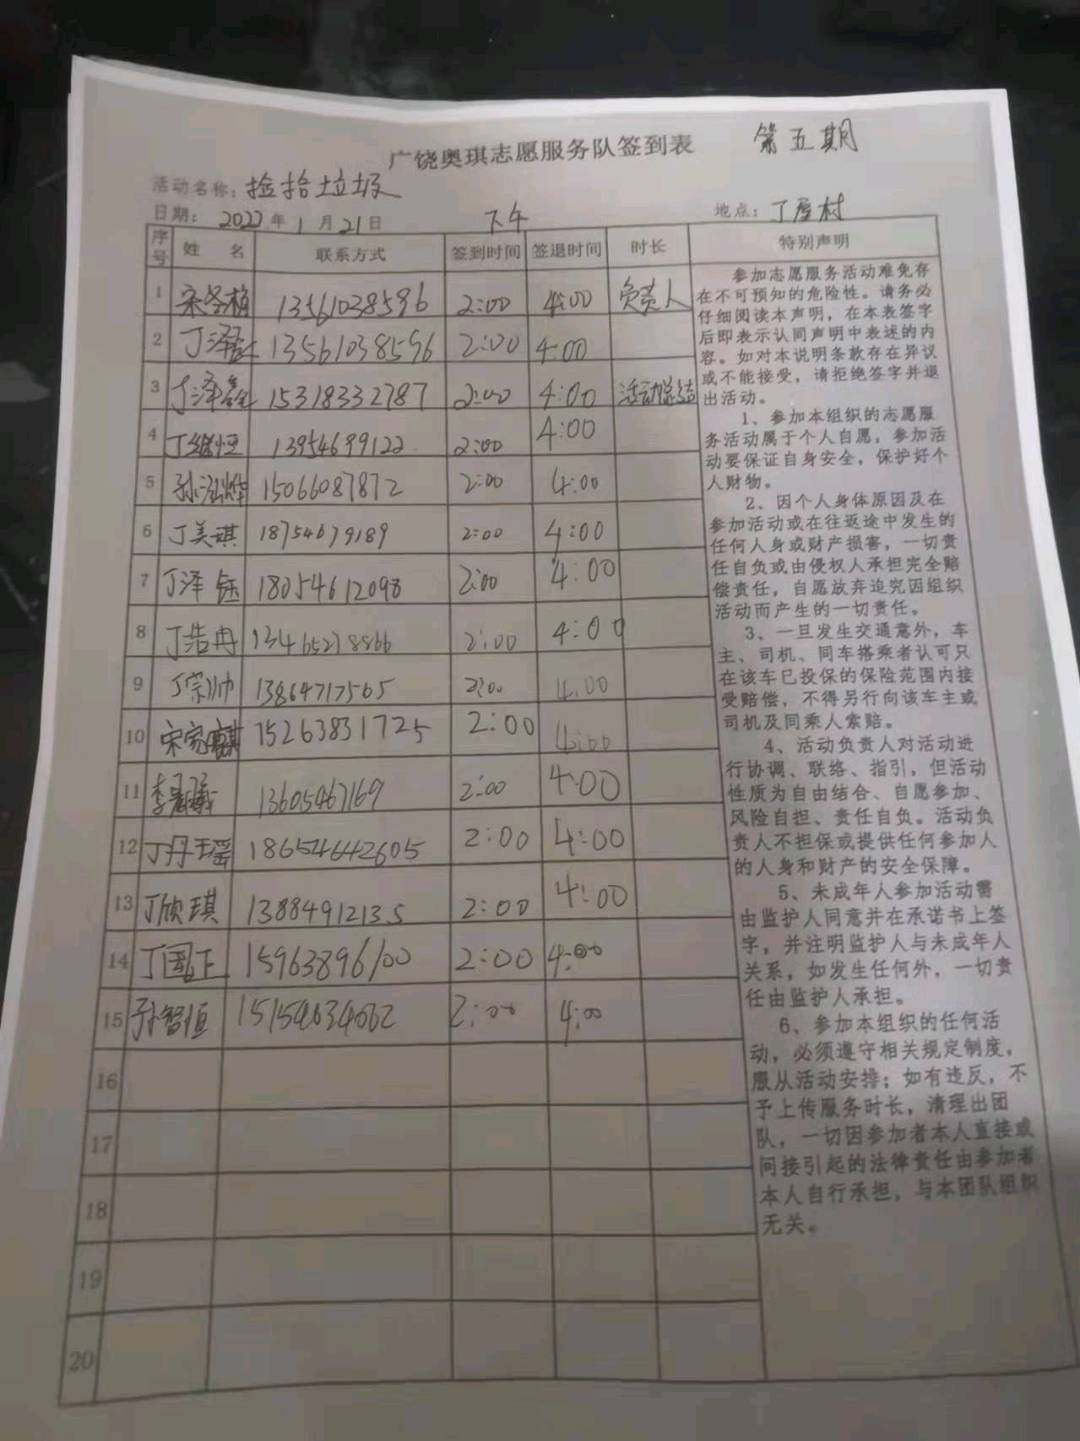 广饶奥琪志愿服务队签到表 第五期
活动名称：捡拾垃圾
日期：2022年1月21日 下午 地点：丁屋村
序号 姓名 联系方式 签到时间 签退时间 时长 特别声明
1 13561038596 2:00 4:00 负责人
2 丁泽 13561038596 2:00 4:00
3 丁泽鑫 15318332787 2:00 4:00 活动总结
4 丁继恒 13954699122 2:00 4:00
5 孙泓烨 15066087872 2:00 4:00
6 丁美琪 18754679189 2:00 4:00
7 丁泽钰 18054612098 2:00 4:00
8 丁浩冉 13465278866 2:00 4:00
9 丁宗帅 13864717565 2:00 4:00
10 宋家麒 15263831725 2:00 4:00
11 李 13605467169 2:00 4:00
12 丁丹瑶 18654642605 2:00 4:00
13 丁欣琪 13884912135 2:00 4:00
14 丁国正 15963896100 2:00 4:00
15 孙智恒 15154634062 2:00 4:00
16
17
18
19
20
参加志愿服务活动难免存
在不可预知的危险性。请务必
仔细阅读本声明，在本表签字
后即表示认同声明中表述的内
容。如对本说明条款存在异议
或不能接受，请拒绝签字并退
出活动。
1、参加本组织的志愿服
务活动属于个人自愿，参加活
动要保证自身安全，保护好个
人财物。
2、因个人身体原因及在
参加活动或在往返途中发生的
任何人身或财产损害，一切责
任自负或由侵权人承担完全赔
偿责任，自愿放弃追究因组织
活动而产生的一切责任。
3、一旦发生交通意外，车
主、司机、同车搭乘者认可只
在该车已投保的保险范围内接
受赔偿，不得另行向该车主或
司机及同乘人索赔。
4、活动负责人对活动进
行协调、联络、指引，但活动
性质为自由结合、自愿参加、
风险自担、责任自负。活动负
责人不担保或提供任何参加人
的人身和财产的安全保障。
5、未成年人参加活动需
由监护人同意并在承诺书上签
字，并注明监护人与未成年人
关系，如发生任何外，一切责
任由监护人承担。
6、参加本组织的任何活
动，必须遵守相关规定制度，
服从活动安排；如有违反，不
予上传服务时长，清理出团
队，一切因参加者本人直接或
间接引起的法律责任由参加者
本人自行承担，与本团队组织
无关。